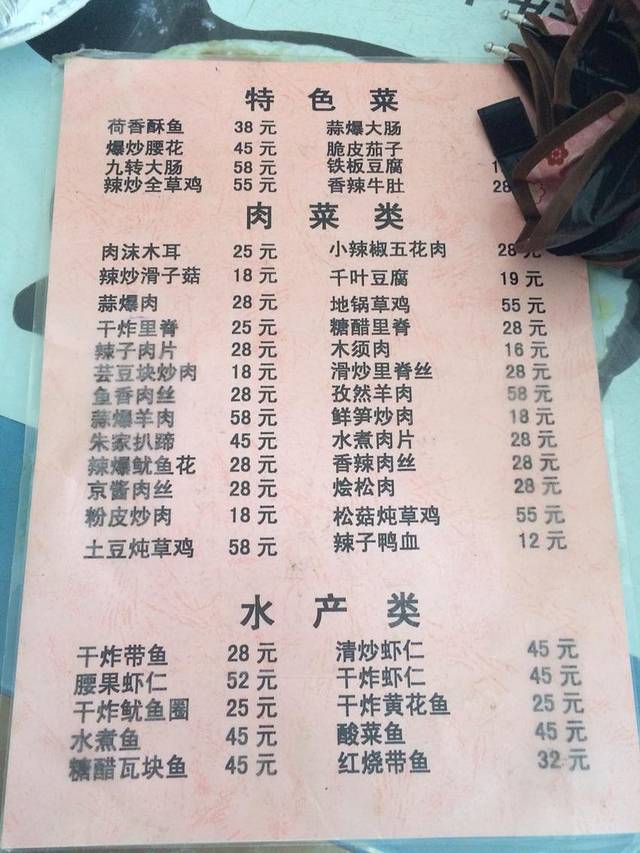 特色菜
荷香酥鱼 38元 蒜爆大肠
爆炒腰花 45元 脆皮茄子
九转大肠 58元 铁板豆腐
辣炒全草鸡 55元 香辣牛肚 28
肉菜类
肉沫木耳 25元 小辣椒五花肉 28元
辣炒滑子菇 18元 千叶豆腐 19元
蒜爆肉 28元 地锅草鸡 55元
干炸里脊 25元 糖醋里脊 28元
辣子肉片 28元 木须肉 16元
芸豆块炒肉 18元 滑炒里脊丝 28元
鱼香肉丝 28元 孜然羊肉 58元
蒜爆羊肉 58元 鲜笋炒肉 18元
朱家扒蹄 45元 水煮肉片 28元
辣爆鱿鱼花 28元 香辣肉丝 28元
京酱肉丝 28元 烩松肉 28元
粉皮炒肉 18元 松菇炖草鸡 55元
土豆炖草鸡 58元 辣子鸭血 12元
水产类
干炸带鱼 28元 清炒虾仁 45元
腰果虾仁 52元 干炸虾仁 45元
干炸鱿鱼圈 25元 干炸黄花鱼 25元
水煮鱼 45元 酸菜鱼 45元
糖醋瓦块鱼 45元 红烧带鱼 32元